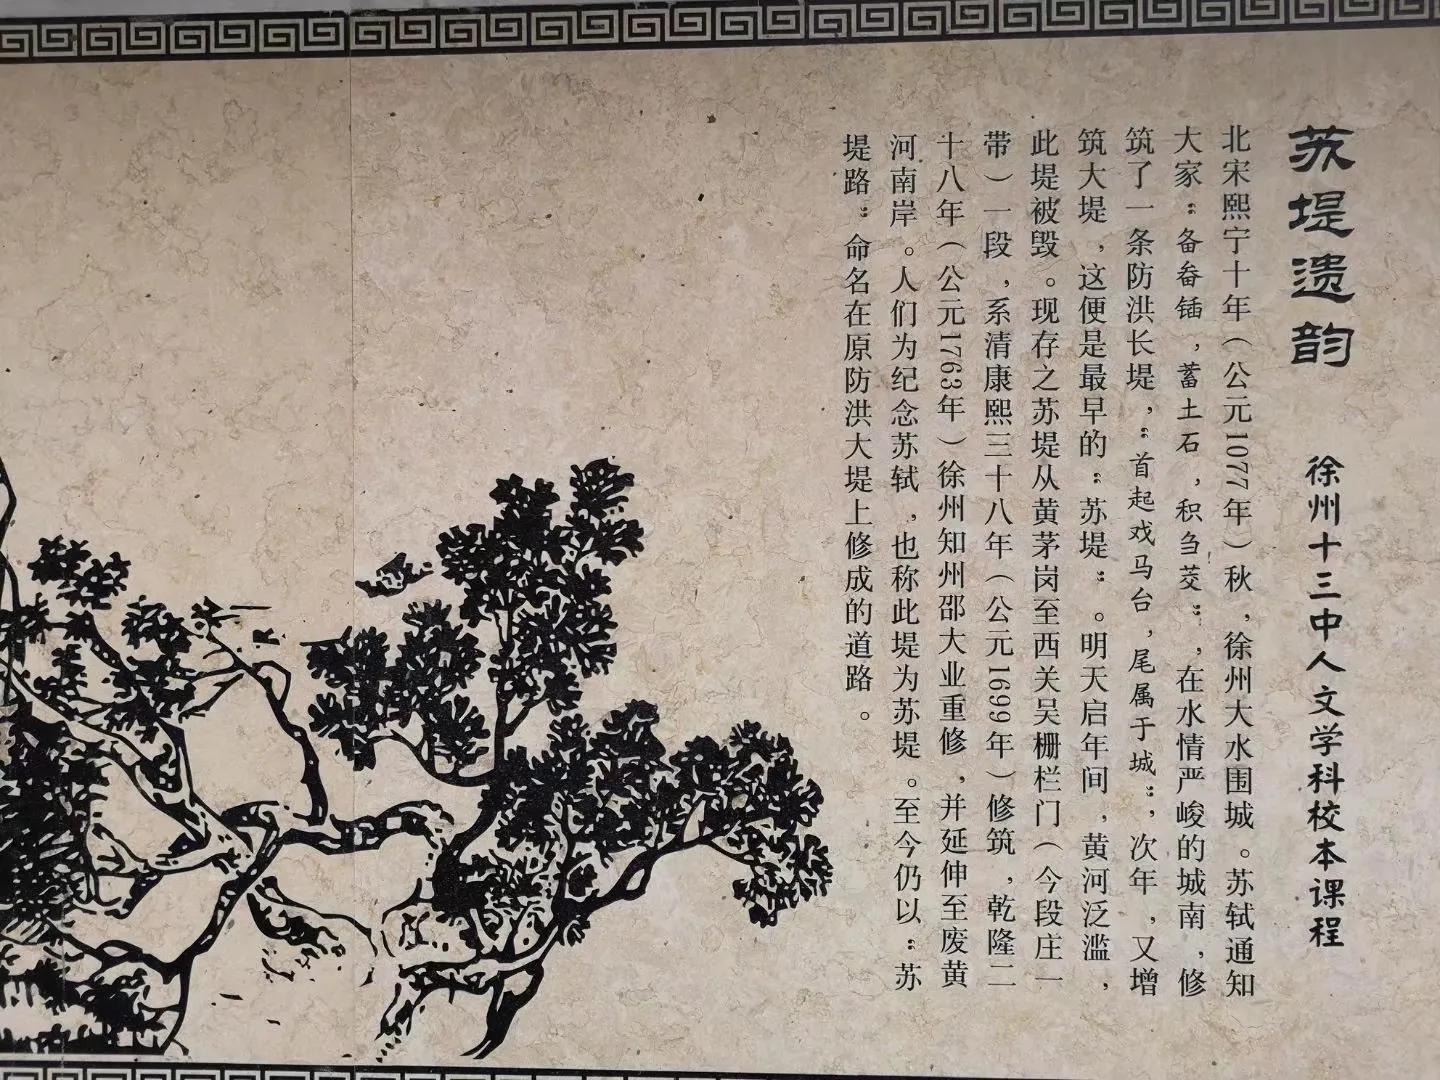 苏堤遗韵
徐州十三中人文学科校本课程
北宋熙宁十年（公元1077年）秋，徐州大水围城。苏轼通知
大家“备畚锸，蓄土石，积刍茭”，在水情严峻的城南，修
筑了一条防洪长堤，“首起戏马台，尾属于城”，次年，又增
筑大堤，这便是最早的“苏堤”。明天启年间，黄河泛滥，
此堤被毁。现存之苏堤从黄茅岗至西关吴栅栏门（今段庄一
带）一段，系清康熙三十八年（公元1699年）修筑，乾隆二
十八年（公元1763年）徐州知州邵大业重修，并延伸至废黄
河南岸。人们为纪念苏轼，也称此堤为苏堤。至今仍以“苏
堤路”命名在原防洪大堤上修成的道路。